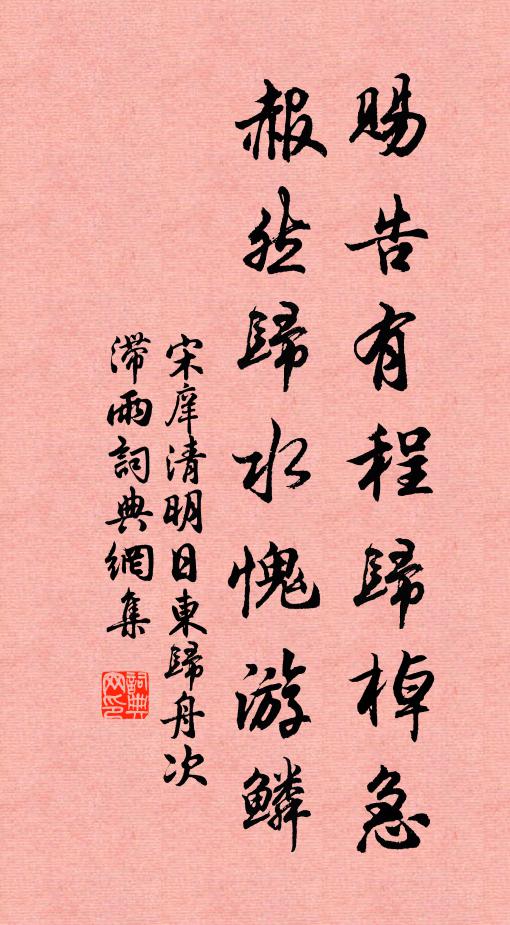 賜告有程歸棹急
赧然歸水愧游鱗
宋庠清明日東歸舟次
滯雨詞典網集
詞典网印